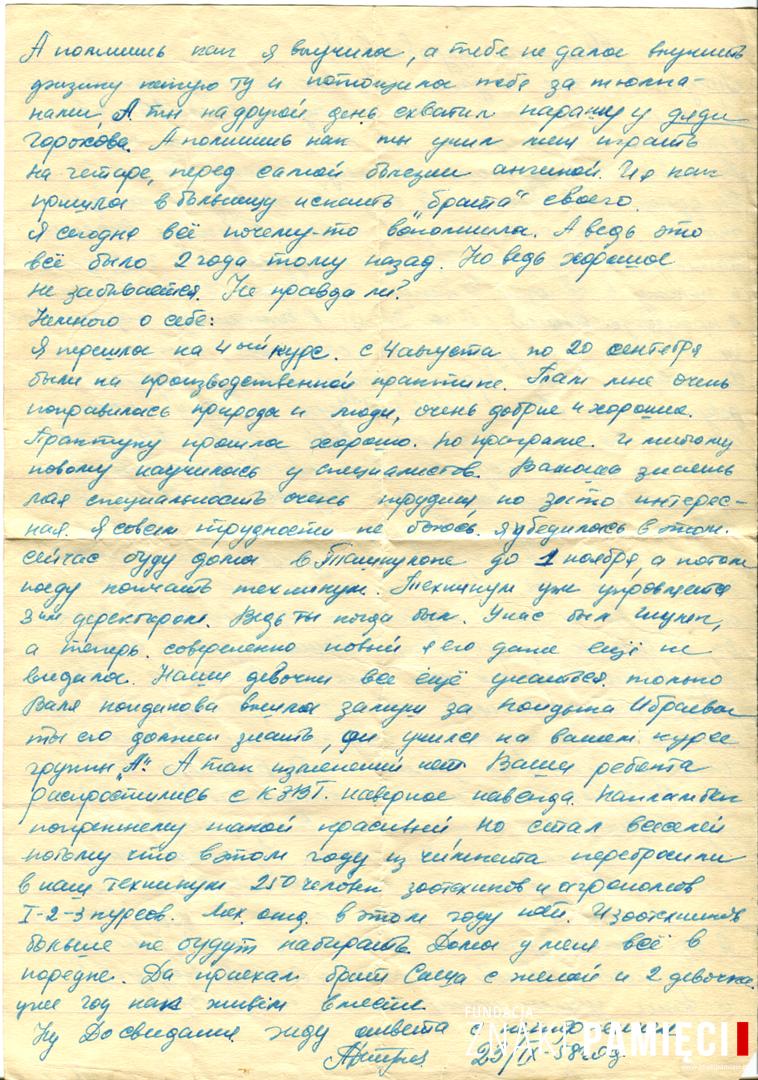 А помнишь как я выучила, а тебе не дала выучить
физику
А ты на другой день схватил у дяди
Горохова. А помнишь как ты учил меня играть
на гетаре, перед самой болезни ангиной. И я как
пришла в больницу искать „брата“ своего.
Я сегодня всё почему-то вспомнила. А ведь это
всё было 2 года тому назад. Но ведь хорошое
не забывается. Не правда ли?
Немного о себе:
Я перешла на 4ый курс. с 4 августа по 20 сентября
были на производственной практике. Там мне очень
понравилась природа и люди, очень добрые и хорошие.
Практику прошла хорошо. по програме. и многому
новому научилась у специалистов. знаешь
моя специальность очень трудная, но зато интерес-
ная. Я совсем трудности не боюсь. я убедилась в этом.
сейчас буду дома в до 1 ноября, а потом
поеду кончать техникум. Техникум уже управляется
3им деректором. Ведь ты когда был. У нас был
а теперь совершенно новый я его даже ещё не
видила. Наши девочки все ещё учаться. только
Валя вышла замуж за Ибраева
ты его должен знать, он учился на вашем курсе
группы „А“. А так изменений нет. Ваши ребята
распростились с КЗВТ. наверное навсегда.
попрежнему такой красивый но стал веселей
потому что в этом году из чимкента перебросили
в наш техникум 250 человек зоотехников и агрономов
I-2-3 курсов. Мех. отд. в этом году нет. И зоотехников
больше не будут набирать. Дома у меня всё в
порядке. Да приехал брат Саша с женой и 2 девочки.
уже год как живём вместе
Ну До свидания жду ответа с нетерпением
25/IX-58 год.
FUNDACJA
ZNAKI PAMIĘCI